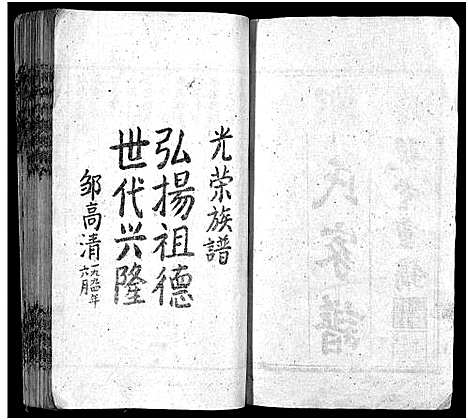 光荣族譜
弘揚祖德
世代兴隆
邹高清
一九九四年
六月
氏家譜